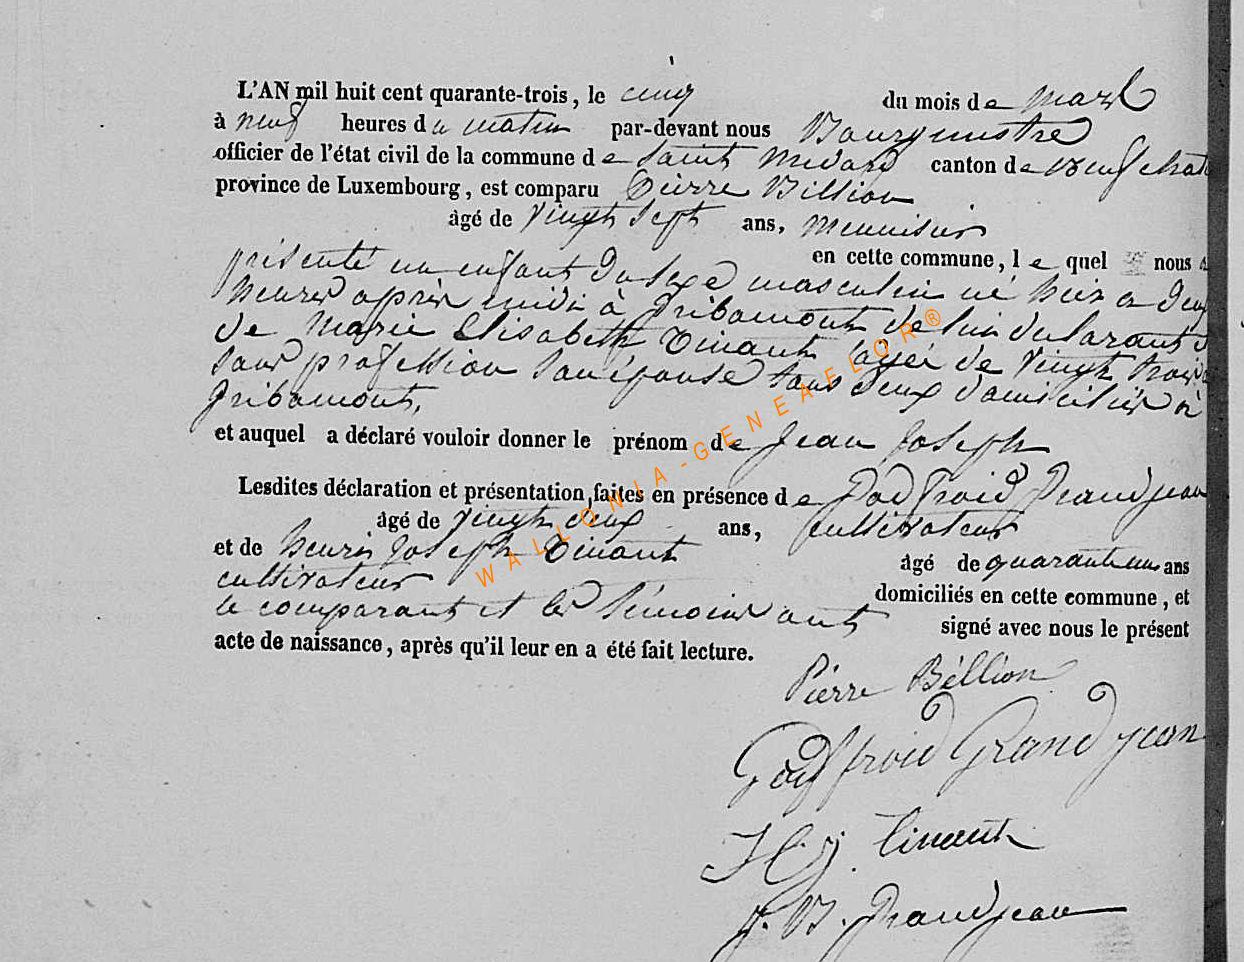 L'AN mil huit cent quarante-trois, le cinq du mois de mars
à neuf heures du matin par-devant nous Bourgmestre
officier de l'état civil de la commune de Saint Médard canton de neufchat
province de Luxembourg, est comparu Pierre Billion
âgé de vingt sept ans, menuisier
en cette commune, le quel nous a
présenté un enfant du sexe masculin né hier a deux
heures après midi à Gribomont de lui déclarant
de Marie Elisabeth Tinant agée de vingt trois
sans profession son épouse tous deux domiciliés à
Gribomont.
et auquel a déclaré vouloir donner le prénom de Jean Joseph
Lesdites déclaration et présentation faites en présence de Godfroid Grandjean
âgé de vingt deux ans, cultivateur
et de henri Joseph Tinant âgé de quarante un ans
cultivateur domiciliés en cette commune, et
le comparant et les témoins ont signé avec nous le présent
acte de naissance, après qu'il leur en a été fait lecture.
Pierre Béllion
Godfroid Grandjean
H J Tinant
J. B. Grandjean
WALLONIA-GENEAFLOR®